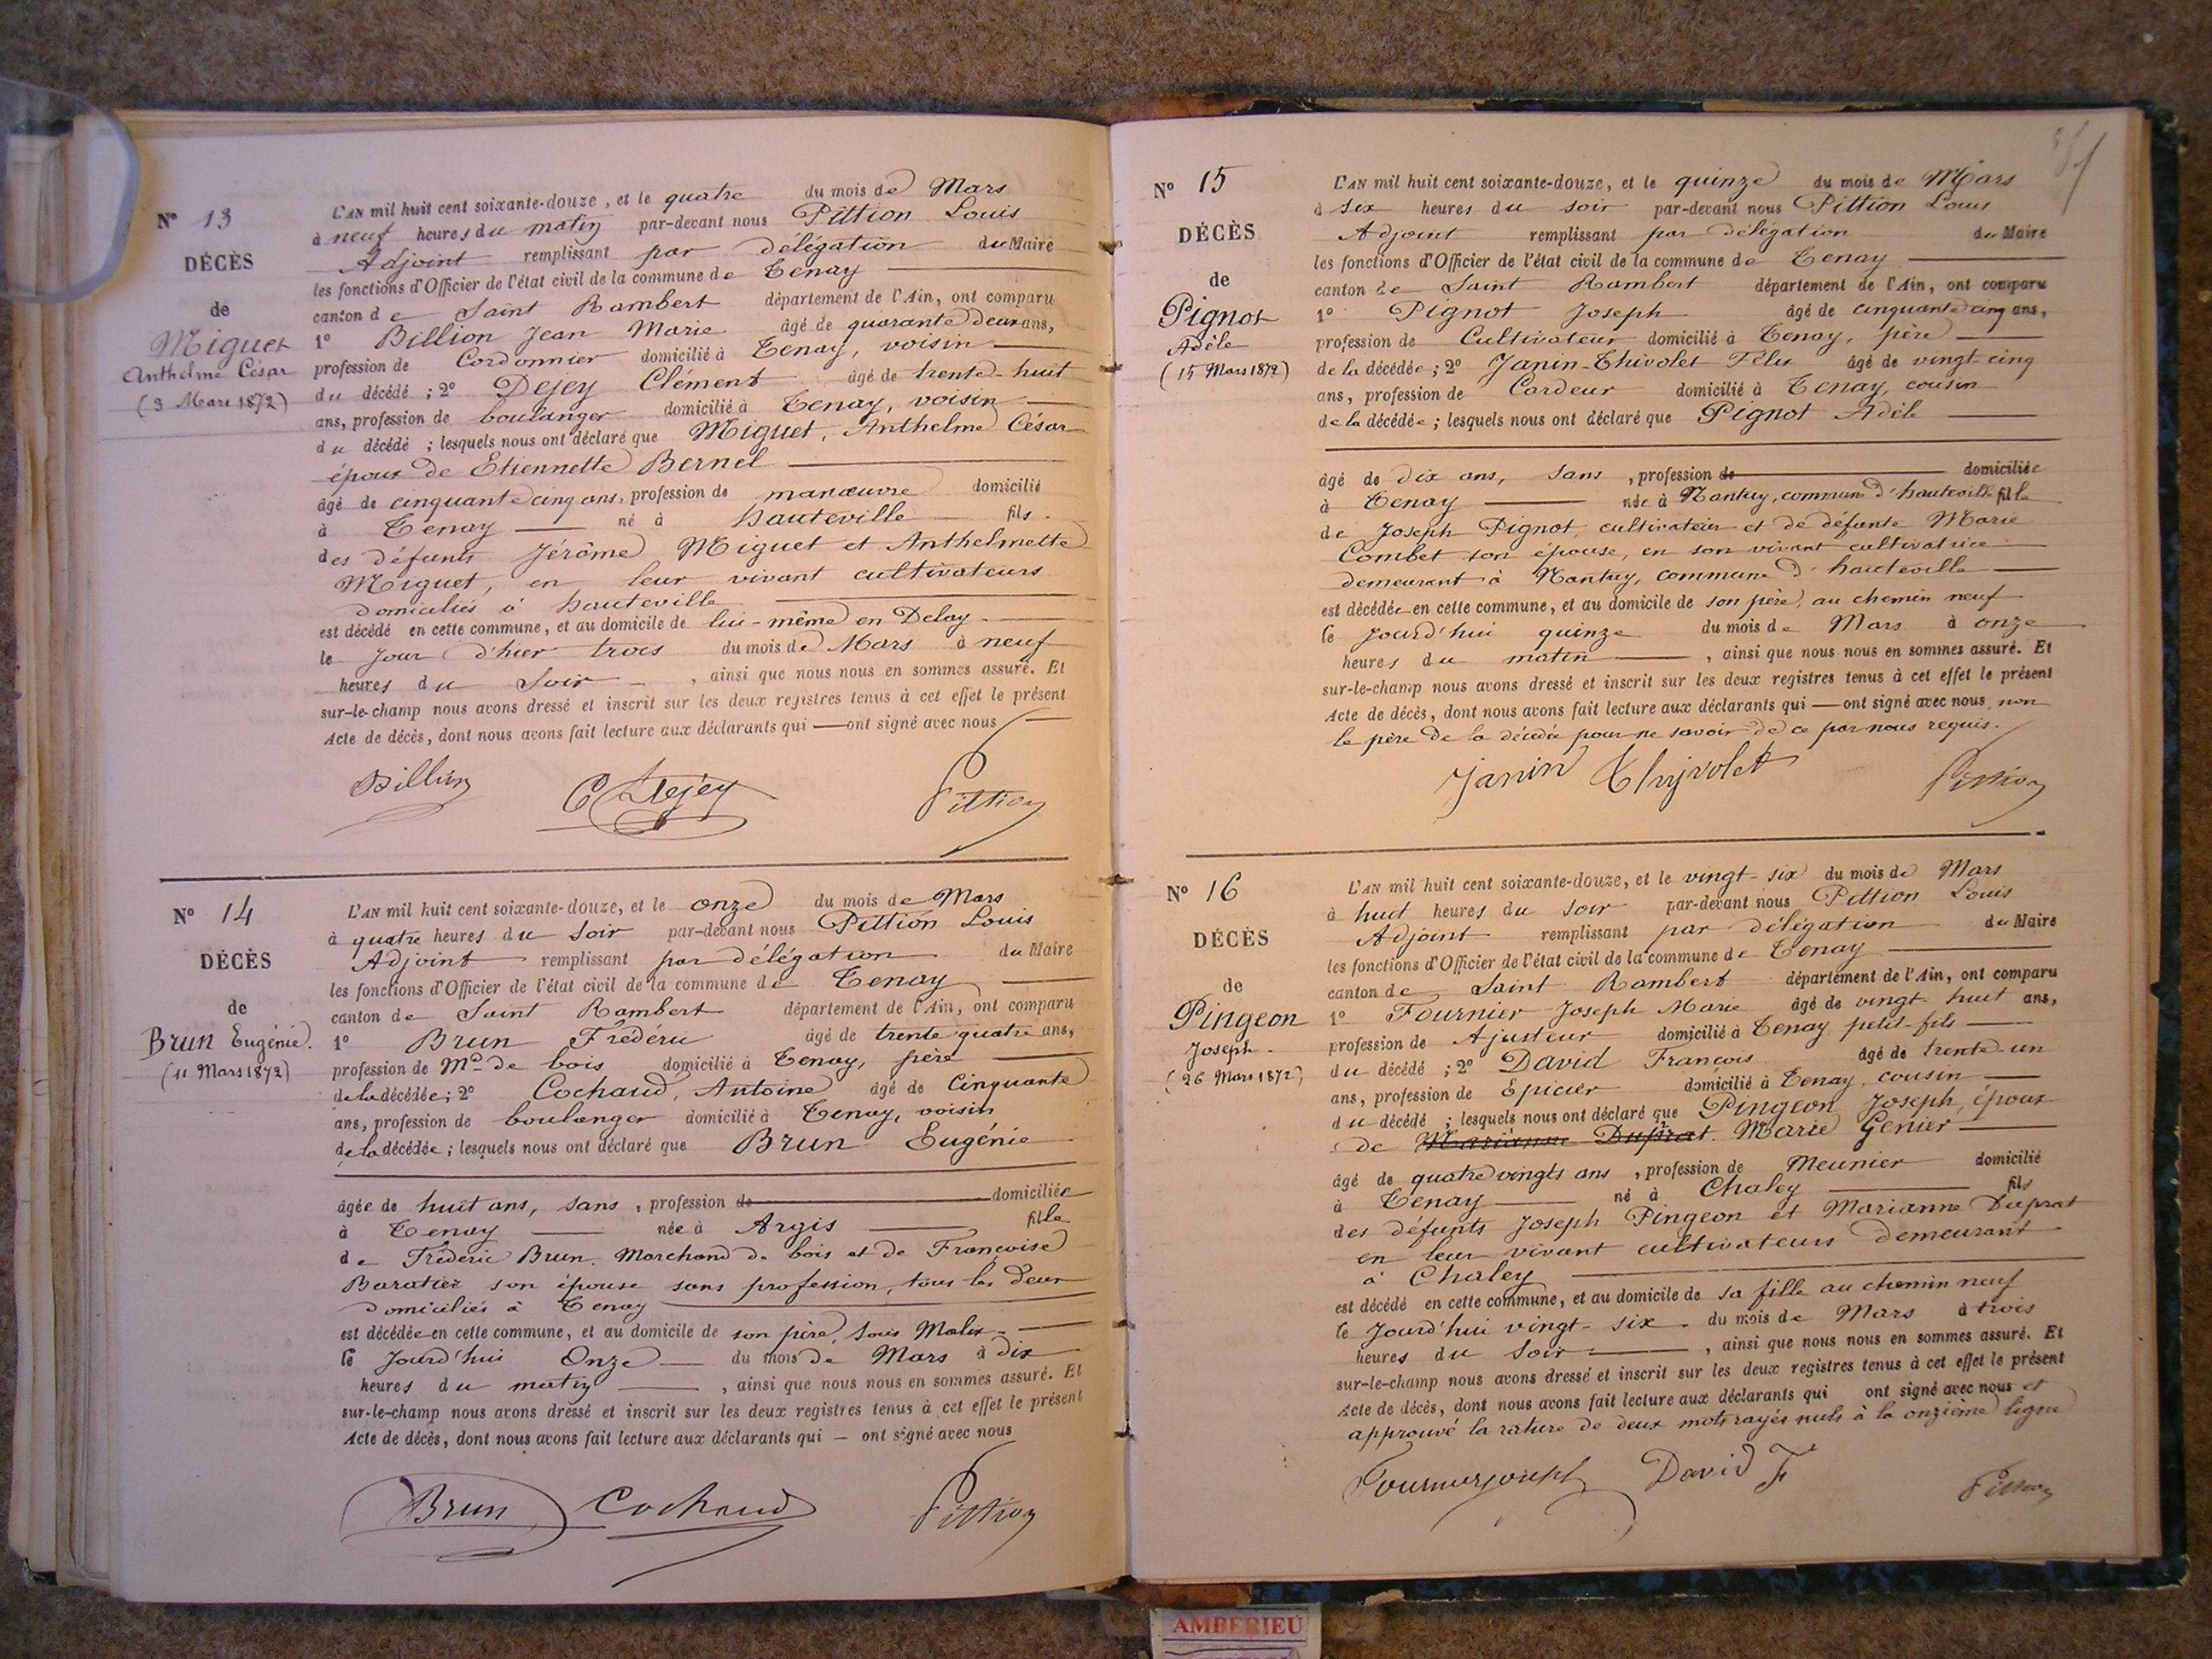 N° 13
DÉCÈS
de
Miguet
Anthelme César
(3 Mars 1872)
L'AN mil huit cent soixante-douze, et le quatre du mois de Mars
à neuf heures du matin par-devant nous Pittion Louis
Adjoint remplissant par délégation du Maire
les fonctions d'Officier de l'état civil de la commune de Tenay
canton de Saint Rambert département de l'Ain, ont comparu
1° Billion Jean Marie âgé de quarante deux ans,
profession de Cordonnier domicilié à Tenay, voisin
du décédé ; 2° Dejey Clément âgé de trente-huit
ans, profession de boulanger domicilié à Tenay, voisin
du décédé ; lesquels nous ont déclaré que Miguet, Anthelme César
époux de Etiennette Bernel
âgé de cinquante cinq ans, profession de manœuvre domicilié
à Tenay né à hauteville fils
des défunts Jérôme Miguet et Anthelmette
Miguet, en leur vivant cultivateurs
domiciliés à hauteville
est décédé en cette commune, et au domicile de lui-même en Delay
le jour d'hier trois du mois de Mars à neuf
heures du Soir, ainsi que nous nous en sommes assuré. Et
sur-le-champ nous avons dressé et inscrit sur les deux registres tenus à cet effet le présent
Acte de décès, dont nous avons fait lecture aux déclarants qui — ont signé avec nous
Billion C Dejey Pittion
N° 14
DÉCÈS
de
Brun Eugénie.
(11 Mars 1872)
L'AN mil huit cent soixante-douze, et le onze du mois de Mars
à quatre heures du soir par-devant nous Pittion Louis
Adjoint remplissant par délégation du Maire
les fonctions d'Officier de l'état civil de la commune de Tenay
canton de Saint Rambert département de l'Ain, ont comparu
1° Brun Frédéric âgé de trente quatre ans,
profession de Md de bois domicilié à Tenay, père
de la décédée ; 2° Cochaud, Antoine âgé de Cinquante
ans, profession de boulanger domicilié à Tenay, voisin
de la décédée ; lesquels nous ont déclaré que Brun Eugénie
âgée de huit ans, sans, profession de domiciliée
à Tenay née à Argis fille
de Frédéric Brun. Marchand de bois et de Françoise
Baratier son épouse sans profession, tous les deux
domiciliés à Tenay
est décédée en cette commune, et au domicile de son père, sous Malix
le Jourd'hui Onze du mois de Mars à dix
heures du matin, ainsi que nous nous en sommes assuré. Et
sur-le-champ nous avons dressé et inscrit sur les deux registres tenus à cet effet le présent
Acte de décès, dont nous avons fait lecture aux déclarants qui — ont signé avec nous
Brun Cochaud Pittion
N° 15
DÉCÈS
de
Pignot
Adèle
(15 Mars 1872)
L'AN mil huit cent soixante-douze, et le quinze du mois de Mars
à six heures du soir par-devant nous Pittion Louis
Adjoint remplissant par délégation du Maire
les fonctions d'Officier de l'état civil de la commune de Tenay
canton de Saint Rambert département de l'Ain, ont comparu
1° Pignot Joseph âgé de cinquante cinq ans,
profession de Cultivateur domicilié à Tenay, père
de la décédée ; 2° Janin-Thivolet Félix âgé de vingt cinq
ans, profession de Cardeur domicilié à Tenay, cousin
de la décédée ; lesquels nous ont déclaré que Pignot Adèle
âgé de dix ans, sans, profession de domiciliée
à Tenay née à Nantuy, commune d'hauteville fille
de Joseph Pignot, cultivateur et de défunte Marie
Combet son épouse, en son vivant cultivatrice
demeurant à Nantuy, commune d'hauteville
est décédée en cette commune, et au domicile de son père, au chemin neuf
le Jourd'hui quinze du mois de Mars à onze
heures du matin, ainsi que nous nous en sommes assuré. Et
sur-le-champ nous avons dressé et inscrit sur les deux registres tenus à cet effet le présent
Acte de décès, dont nous avons fait lecture aux déclarants qui — ont signé avec nous, non
le père de la décédée pour ne savoir de ce par nous requis.
Janin Thivolet Pittion
N° 16
DÉCÈS
de
Pingeon
Joseph
(26 Mars 1872)
L'AN mil huit cent soixante-douze, et le vingt-six du mois de Mars
à huit heures du soir par-devant nous Pittion Louis
Adjoint remplissant par délégation du Maire
les fonctions d'Officier de l'état civil de la commune de Tenay
canton de Saint Rambert département de l'Ain, ont comparu
1° Fournier Joseph Marie âgé de vingt-huit ans,
profession de Ajusteur domicilié à Tenay petit-fils
du décédé ; 2° David François âgé de trente-un
ans, profession de Epicier domicilié à Tenay, cousin
du décédé ; lesquels nous ont déclaré que Pingeon Joseph, époux
de Marianne Duprat. Marie Genier
âgé de quatre vingts ans, profession de Meunier domicilié
à Tenay né à Chaley fils
des défunts Joseph Pingeon et Marianne Duprat
en leur vivant cultivateurs demeurant
à Chaley
est décédé en cette commune, et au domicile de sa fille au chemin neuf
le Jourd'hui vingt-six du mois de Mars à trois
heures du Soir, ainsi que nous nous en sommes assuré. Et
sur-le-champ nous avons dressé et inscrit sur les deux registres tenus à cet effet le présent
Acte de décès, dont nous avons fait lecture aux déclarants qui ont signé avec nous et
approuvé la rature de deux mots rayés nuls à la onzième ligne
Fournier joseph David F Pittion
AMBERIEU